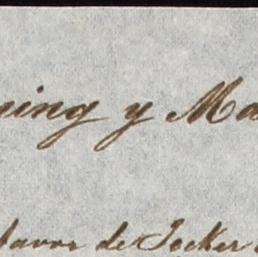 ning y Ma
favor de Jecker